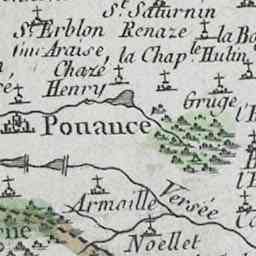 St. Saturnin
St. Erblon Renaze la
Araise, la Chap.le Hulin
Chazé
Henry
Gruge
Pouance
Armaille
Versée
Noellet